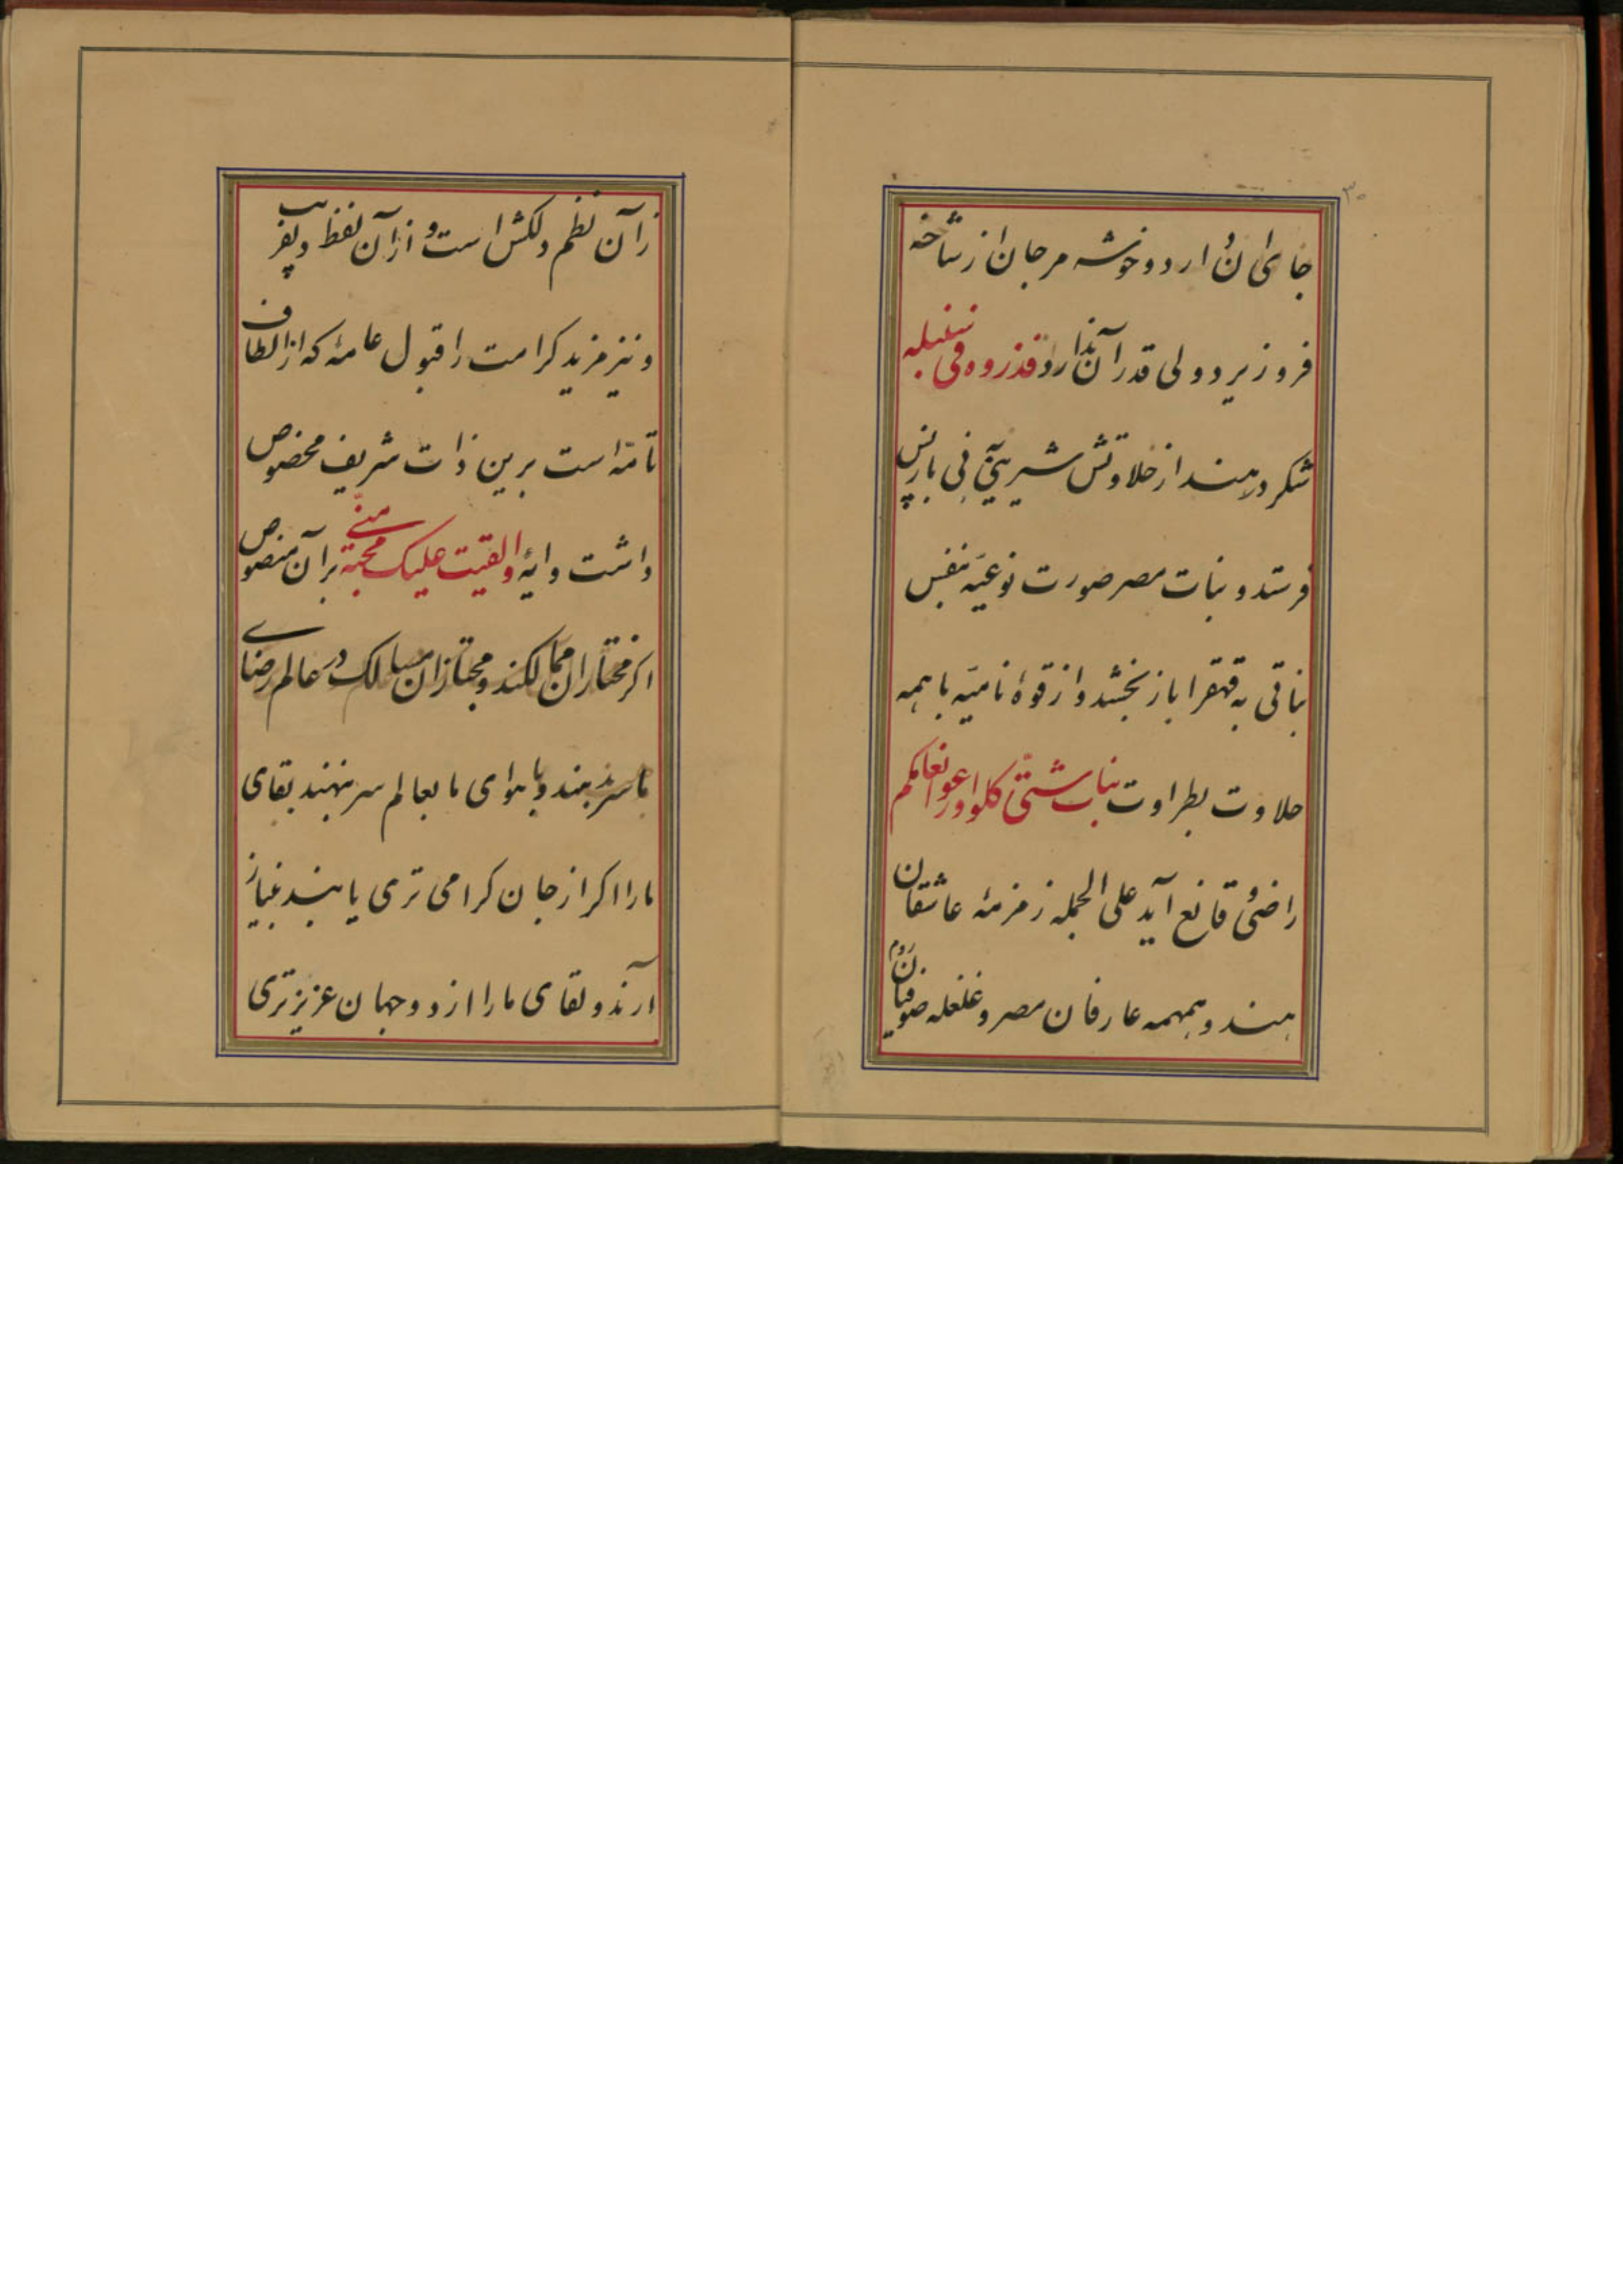 ۳۰
جای آن دارد و خوشه مرجان از شاخه
فروزیرد ولی قدر آن ندارد فذروه فی سنبله
شکر در هند از حلاوتش شیرینی نی باز پس
فرستد و نبات مصر صورت نوعیّه بنفس
نباتی به قهقرا باز بخشد و از قوهٔ نامیّه با همه
حلاوت بطراوت نبات شتّی کلوا وارعوا انعامکم
راضی و قانع آید علی الجمله زمزمهٔ عاشقان
هند و همهمه عارفان مصر و غلغله صوفیان روم
زآن نظم دلکش است و از آن لفظ دلفریب
و نیز مزید کرامت را قبول عامهٔ که از الطاف
تامّه است برین ذات شریف مخصوص
داشت و ایهٔ والقیت علیک محبة منّی بر آن منصوص
اکر مختاران ممالکند و مجتازان مسالک در عالم رضای
ما سر نهند و با هوای ما بعالم سر ننهند بقای
ما را اکر از جان کرامی تری یابند نیاز
آرند و لقای ما را از دو جهان عزیزتری